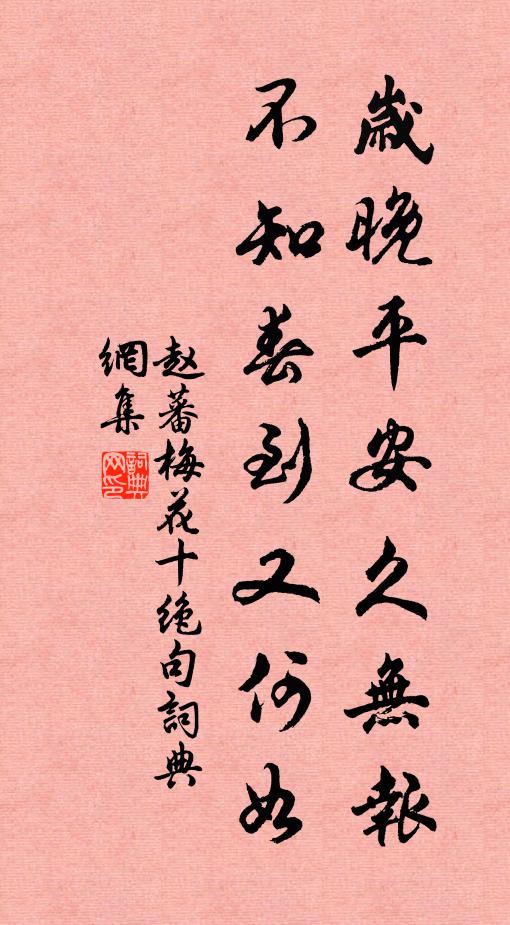 歲晚平安久無報
不知春到又何如
赵蕃梅花十绝句詞典
網集
詞典
网印